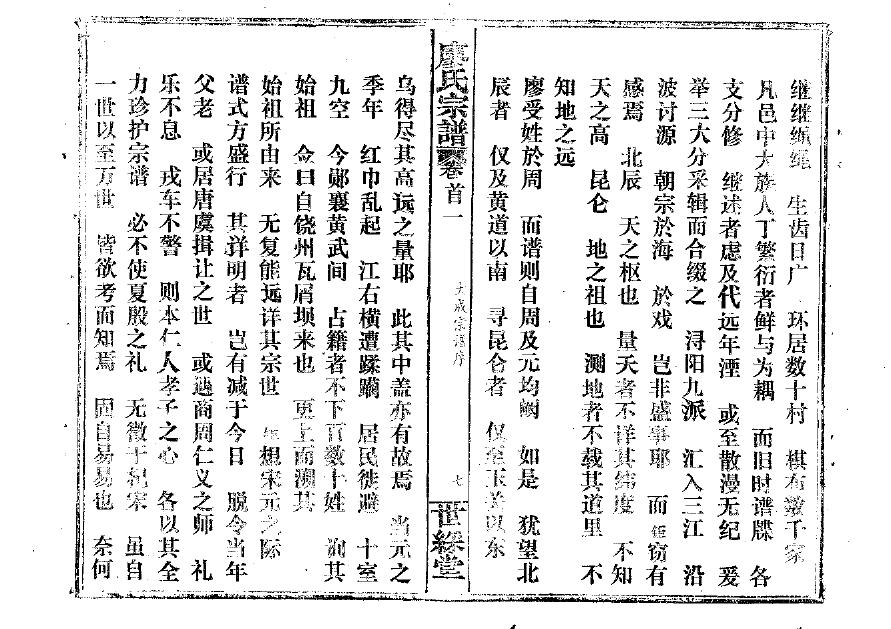 继继绳绳 生齿日广 环居数十村 棋布数千家
凡邑中大族人丁繁衍者鲜与为耦 而旧时谱牒 各
支分修 继述者虑及代远年湮 或至散漫无纪 爰
举三大分采辑而合缀之 浔阳九派 汇入三江 沿
波讨源 朝宗於海 於戏 岂非盛事耶 而 窃有
感焉 北辰 天之枢也 量天者不详其纬度 不知
天之高 昆仑 地之祖也 测地者不载其道里 不
知地之远
廖受姓於周 而谱则自周及元均阙 如是 犹望北
辰者 仅及黄道以南 寻昆仑者 仅至玉关以东
廖氏宗譜 卷首一 大成宗谱序 七 世綵堂
乌得尽其高远之量耶 此其中盖亦有故焉 当元之
季年 红巾乱起 江右横遭蹂躏 居民徙避 十室
九空 今郧襄黄武间 占籍者不下百数十姓 询其
始祖 佥曰自饶州瓦屑坝来也 更上而溯其
始祖所由来 无复能远详其宗世 想宋元之际
谱式方盛行 其详明者 岂有减于今日 脱令当年
父老 或居唐虞揖让之世 或遇商周仁义之师 礼
乐不息 戎车不警 则本仁人孝子之心 各以其全
力珍护宗谱 必不使夏殷之礼 无徵于杞宋 虽自
一世以至万世 皆欲考而知焉 固自易易也 奈何